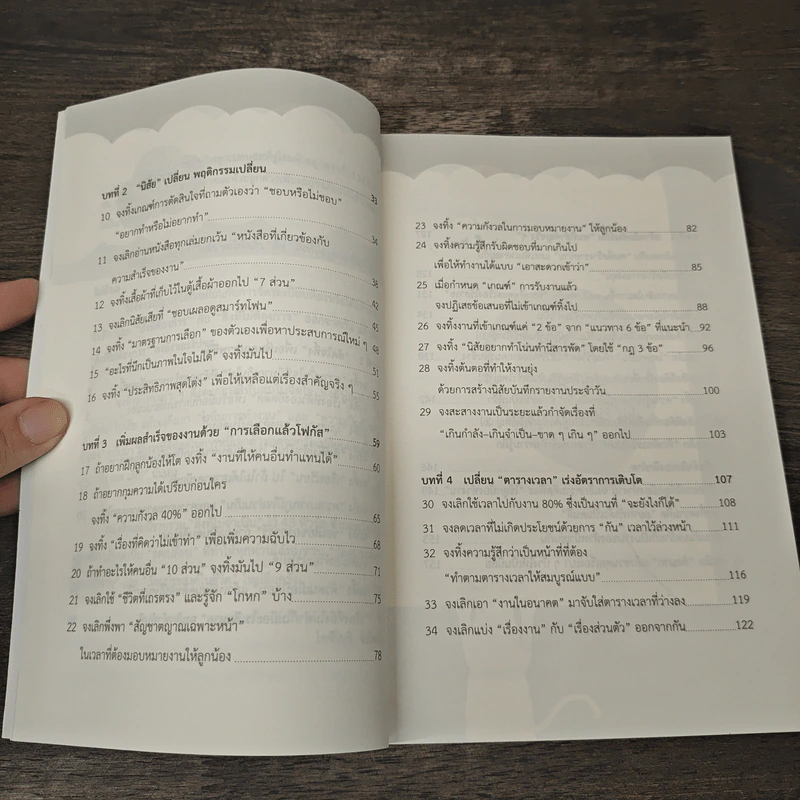 บทที่ 2 "นิสัย" เปลี่ยน พฤติกรรมเปลี่ยน 33
10 จงทิ้งเกณฑ์การตัดสินใจที่ถามตัวเองว่า "ชอบหรือไม่ชอบ"
"อยากทำหรือไม่อยากทำ" 34
11 จงเลิกอ่านหนังสือทุกเล่มยกเว้น "หนังสือที่เกี่ยวข้องกับ
ความสำเร็จของงาน" 38
12 จงทิ้งเสื้อผ้าที่เก็บไว้ในตู้เสื้อผ้าออกไป "7 ส่วน" 42
13 จงเลิกนิสัยเสียที่ "ชอบเผลอดูสมาร์ทโฟน" 45
14 จงทิ้ง "มาตรฐานการเลือก" ของตัวเองเพื่อหาประสบการณ์ใหม่ ๆ 48
15 "อะไรที่นึกเป็นภาพในใจไม่ได้" จงทิ้งมันไป 51
16 จงทิ้ง "ประสิทธิภาพสุดโต่ง" เพื่อให้เหลือแต่เรื่องสำคัญจริง ๆ 55
บทที่ 3 เพิ่มผลสำเร็จของงานด้วย "การเลือกแล้วโฟกัส" 59
17 ถ้าอยากฝึกลูกน้องให้โต จงทิ้ง "งานที่ให้คนอื่นทำแทนได้" 60
18 ถ้าอยากกุมความได้เปรียบก่อนใคร
จงทิ้ง "ความกังวล 40%" ออกไป 65
19 จงทิ้ง "เรื่องที่คิดว่าไม่เข้าท่า" เพื่อเพิ่มความฉับไว 68
20 ถ้าทำอะไรให้คนอื่น "10 ส่วน" จงทิ้งมันไป "9 ส่วน" 71
21 จงเลิกใช้ "ชีวิตที่เถรตรง" และรู้จัก "โกหก" บ้าง 75
22 จงเลิกพึ่งพา "สัญชาตญาณเฉพาะหน้า"
ในเวลาที่ต้องมอบหมายงานให้ลูกน้อง 78
23 จงทิ้ง "ความกังวลในการมอบหมายงาน" ให้ลูกน้อง 82
24 จงทิ้งความรู้สึกรับผิดชอบที่มากเกินไป
เพื่อให้ทำงานได้แบบ "เอาสะดวกเข้าว่า" 85
25 เมื่อกำหนด "เกณฑ์" การรับงานแล้ว
จงปฏิเสธข้อเสนอที่ไม่เข้าเกณฑ์ทิ้งไป 88
26 จงทิ้งงานที่เข้าเกณฑ์แค่ "2 ข้อ" จาก "แนวทาง 6 ข้อ" ที่แนะนำ 92
27 จงทิ้ง "นิสัยอยากทำโน่นทำนี่สารพัด" โดยใช้ "กฎ 3 ข้อ" 96
28 จงทิ้งต้นตอที่ทำให้งานยุ่ง
ด้วยการสร้างนิสัยบันทึกรายงานประจำวัน 100
29 จงสะสางงานเป็นระยะแล้วกำจัดเรื่องที่
"เกินกำลัง-เกินจำเป็น-ขาด ๆ เกิน ๆ" ออกไป 103
บทที่ 4 เปลี่ยน "ตารางเวลา" เร่งอัตราการเติบโต 107
30 จงเลิกใช้เวลาไปกับงาน 80% ซึ่งเป็นงานที่ "จะยังไงก็ได้" 108
31 จงลดเวลาที่ไม่เกิดประโยชน์ด้วยการ "กัน" เวลาไว้ล่วงหน้า 111
32 จงทิ้งความรู้สึกว่าเป็นหน้าที่ที่ต้อง
"ทำตามตารางเวลาให้สมบูรณ์แบบ" 116
33 จงเลิกเอา "งานในอนาคต" มาจับใส่ตารางเวลาที่ว่างลง 119
34 จงเลิกแบ่ง "เรื่องงาน" กับ "เรื่องส่วนตัว" ออกจากกัน 122